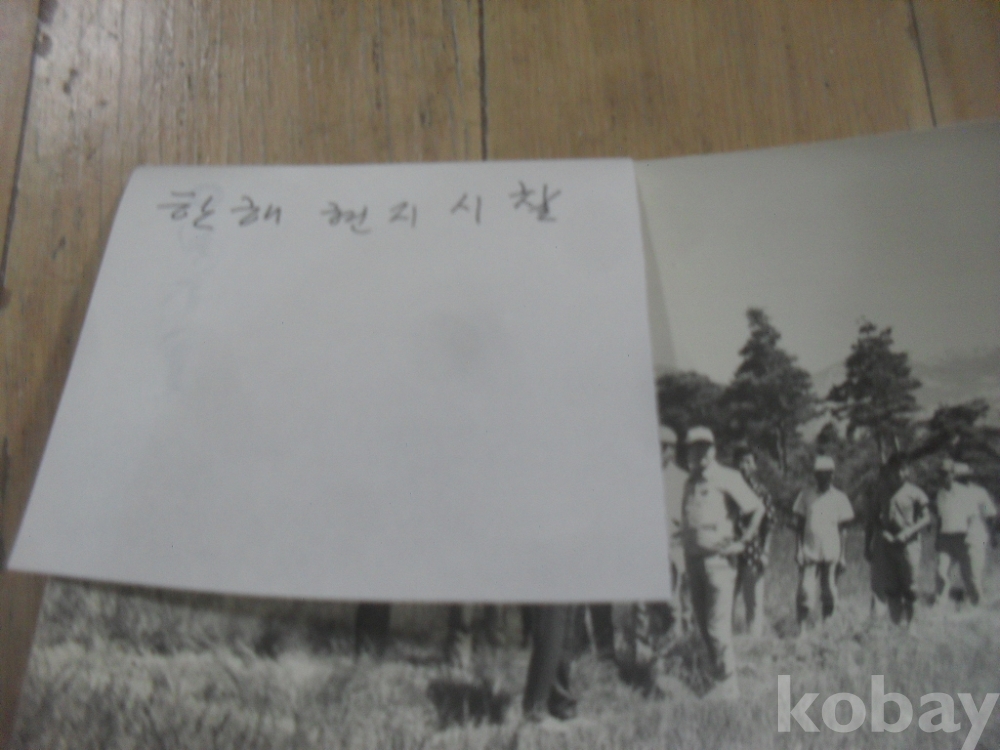 한해 현지시찰
kobay